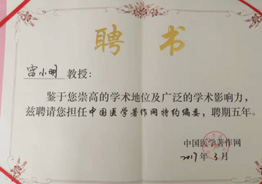 聘书
宫小明 教授:
鉴于您崇高的学术地位及广泛的学术影响力,
兹聘请您担任中国医学著作网特约编委,聘期五年。
中国医学著作网
2017年3月